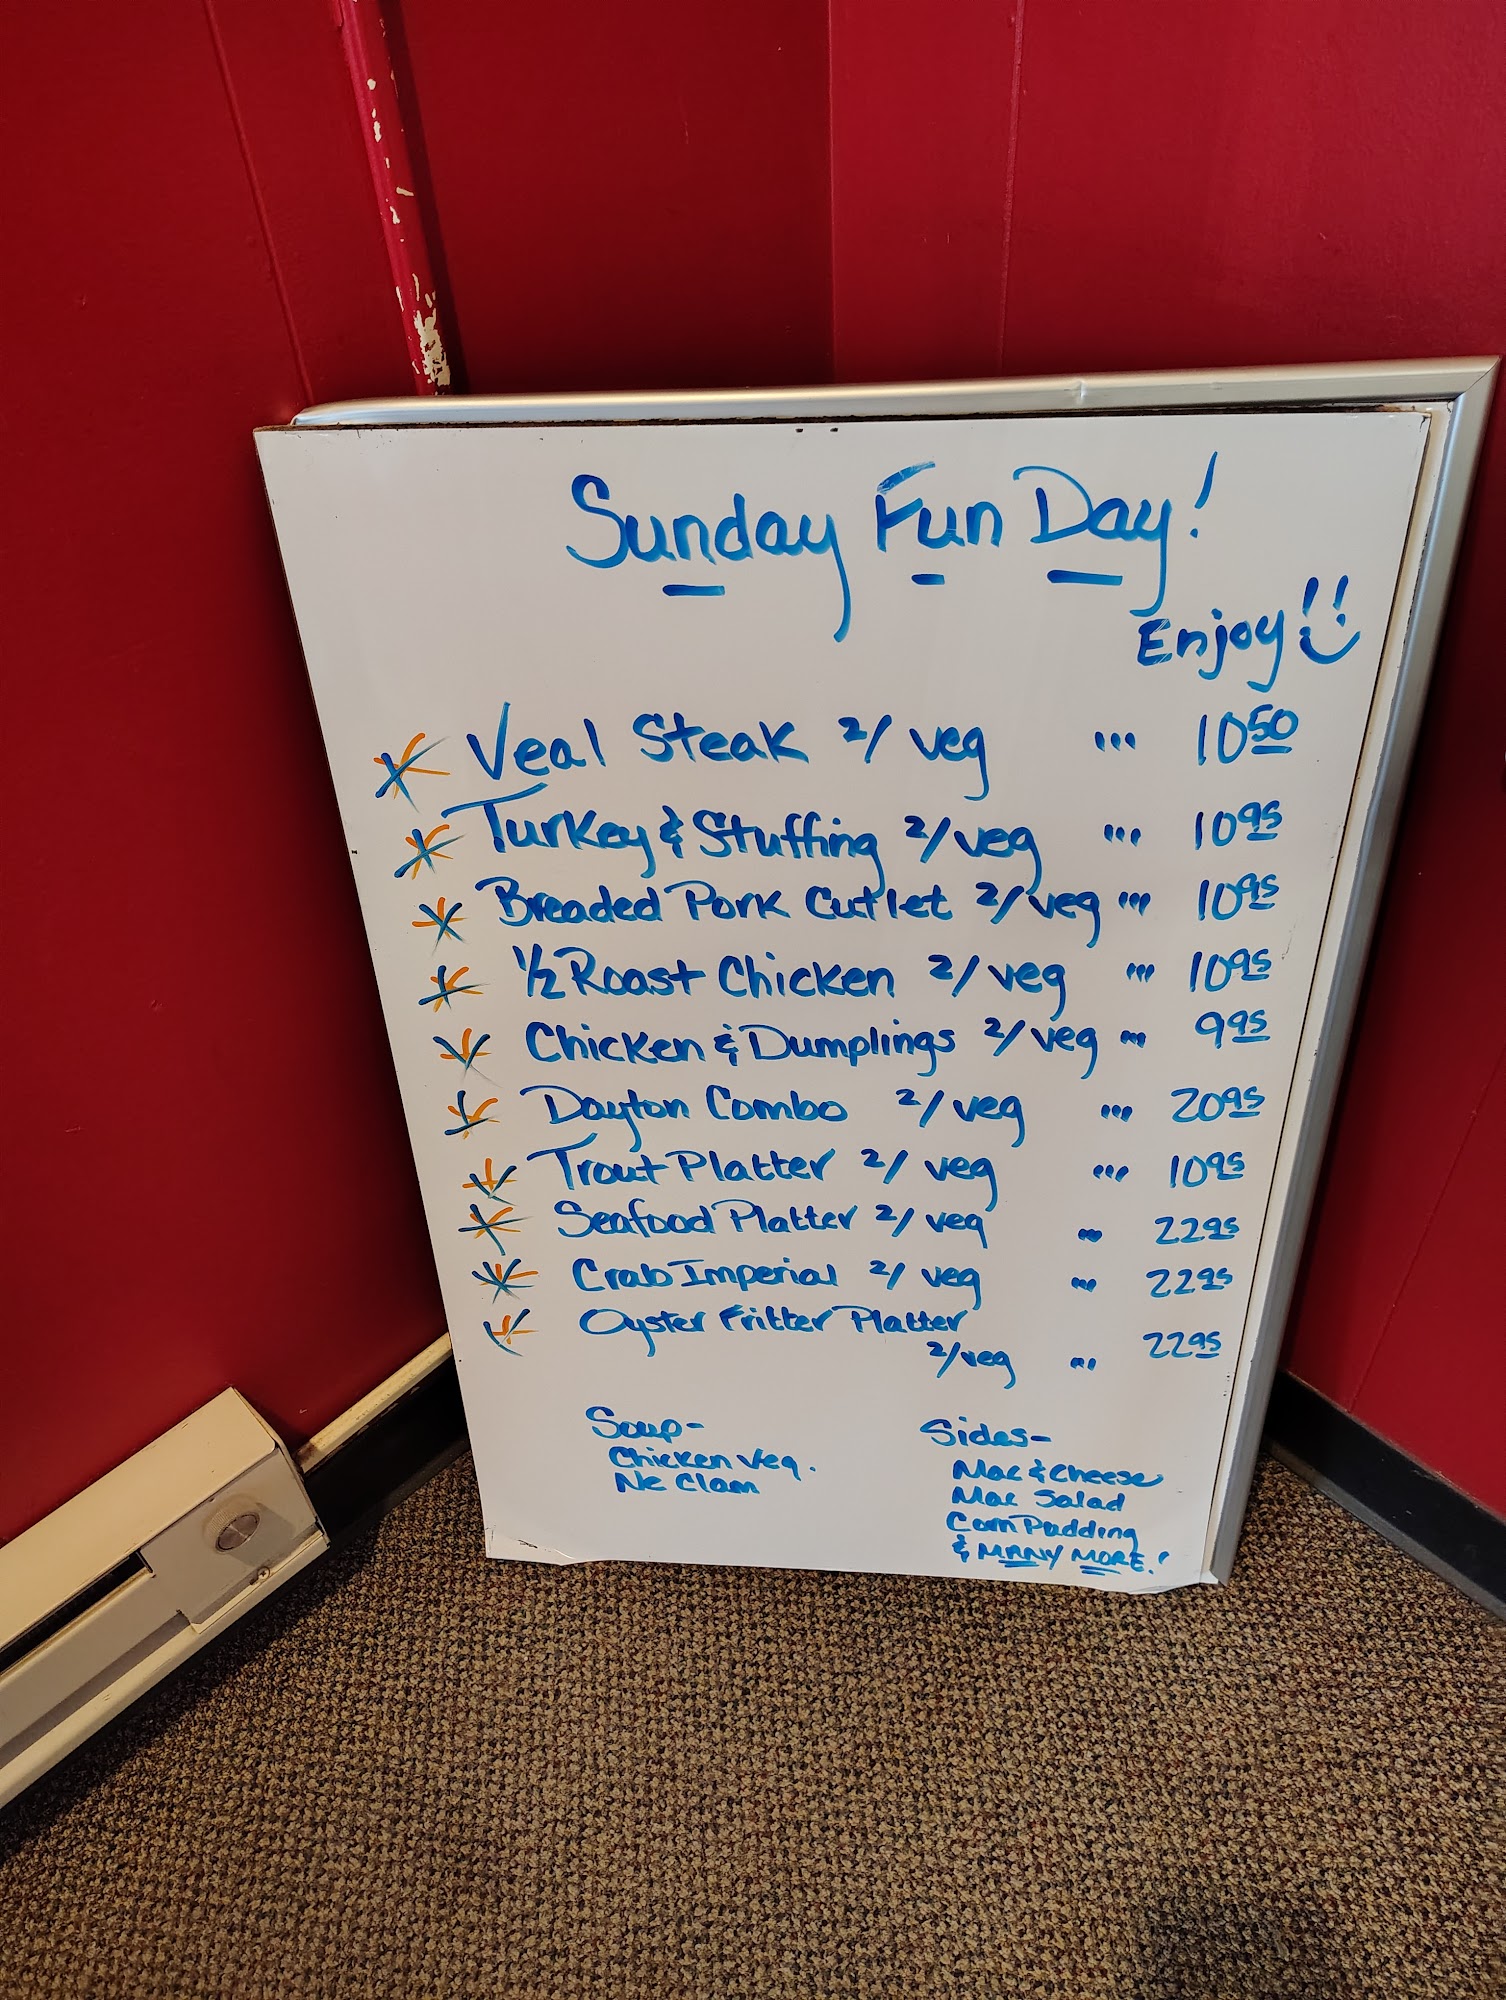 Sunday Fun Day!
Enjoy!!
Veal Steak 2/ veg ... 10.50
Turkey & Stuffing 2/veg ... 10.95
Breaded Pork Cutlet 2/veg ... 10.95
1/2 Roast Chicken 2/veg ... 10.95
Chicken & Dumplings 2/veg ... 9.95
Dayton Combo 2/veg ... 20.95
Trout Platter 2/ veg ... 10.95
Seafood Platter 2/ veg ... 22.95
Crab Imperial 2/ veg ... 22.95
Oyster Fritter Platter
2/veg ... 22.95
Soup-
Chicken Veg.
NE Clam
Sides-
Mac & Cheese
Mac Salad
Corn Pudding
& MANY MORE!